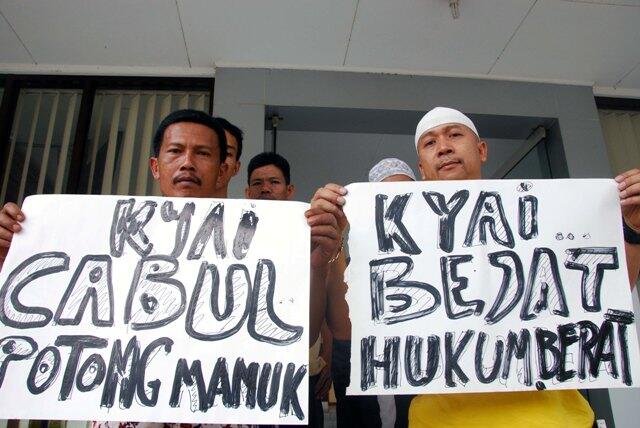 KYAI
CABUL
POTONG MANUK
KYAI...
BEJAT
HUKUM BERAT